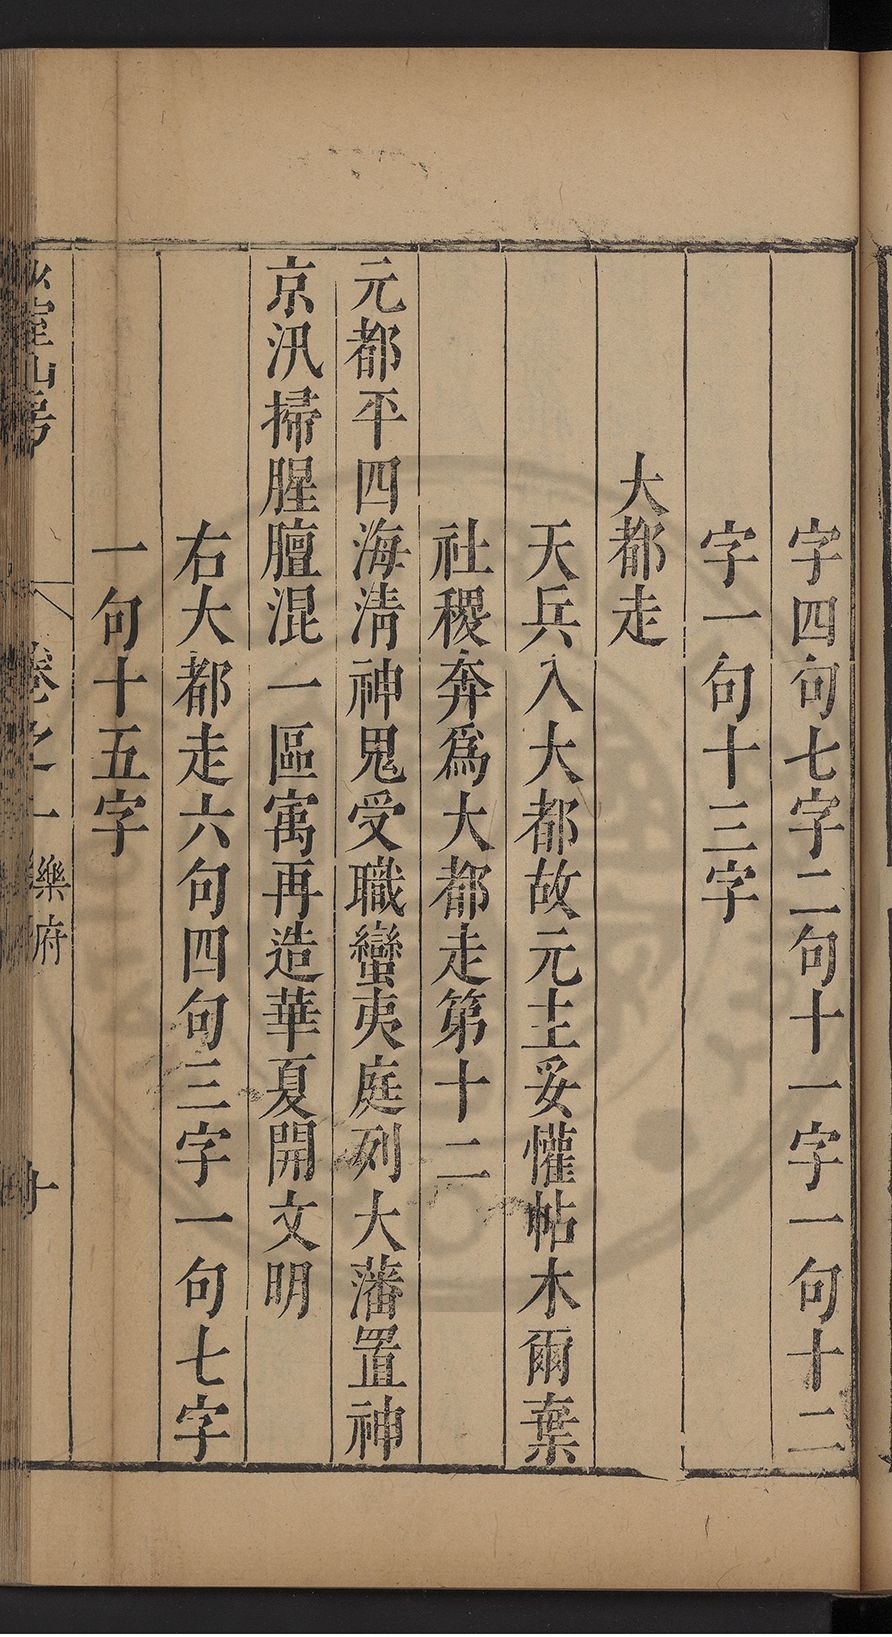 字四句七字二句十一字一句十二
字一句十三字
大都走
天兵入大都故元主妥懽帖木爾棄
社稷奔爲大都走第十二
元都平四海淸神鬼受職蠻夷庭列大藩置神
京汛掃腥膻混一區寓再造華夏開文明
右大都走六句四句三字一句七字
一句十五字
室山房
卷之一
樂府
十